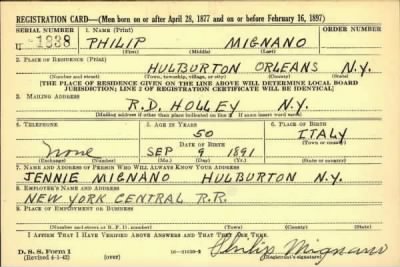 REGISTRATION CARD—(Men born on or after April 28, 1877 and on or before February 16, 1897)
SERIAL NUMBER 1. NAME (Print) ORDER NUMBER
U 1838 PHILIP MIGNANO
(First) (Middle) (Last)
2. PLACE OF RESIDENCE (Print)
HULBURTON ORLEANS N.Y.
(Number and street) (Town, township, village, or city) (County) (State)
[THE PLACE OF RESIDENCE GIVEN ON THE LINE ABOVE WILL DETERMINE LOCAL BOARD
JURISDICTION; LINE 2 OF REGISTRATION CERTIFICATE WILL BE IDENTICAL]
3. MAILING ADDRESS
R.D. HOLLEY N.Y.
[Mailing address if other than place indicated on line 2. If same insert word same]
4. TELEPHONE 5. AGE IN YEARS 6. PLACE OF BIRTH
50 ITALY
None DATE OF BIRTH (Town or county)
SEP 9 1891
(Exchange) (Number) (Mo.) (Day) (Yr.) (State or country)
7. NAME AND ADDRESS OF PERSON WHO WILL ALWAYS KNOW YOUR ADDRESS
JENNIE MIGNANO HULBURTON N.Y.
8. EMPLOYER'S NAME AND ADDRESS
NEW YORK CENTRAL R.R.
9. PLACE OF EMPLOYMENT OR BUSINESS
(Number and street or R. F. D. number) (Town) (County) (State)
I AFFIRM THAT I HAVE VERIFIED ABOVE ANSWERS AND THAT THEY ARE TRUE.
D. S. S. Form 1
(Revised 4-1-42) (over)
Philip Mignano
(Registrant's signature)